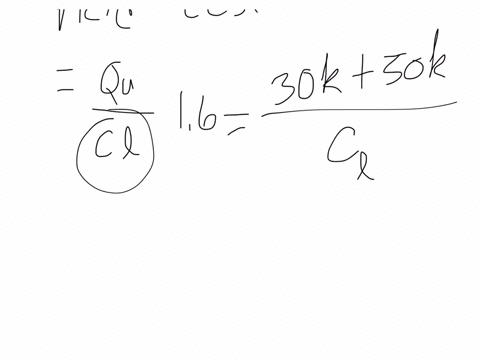 = Qu / Cl 1.6 = 30k + 50k / Cl